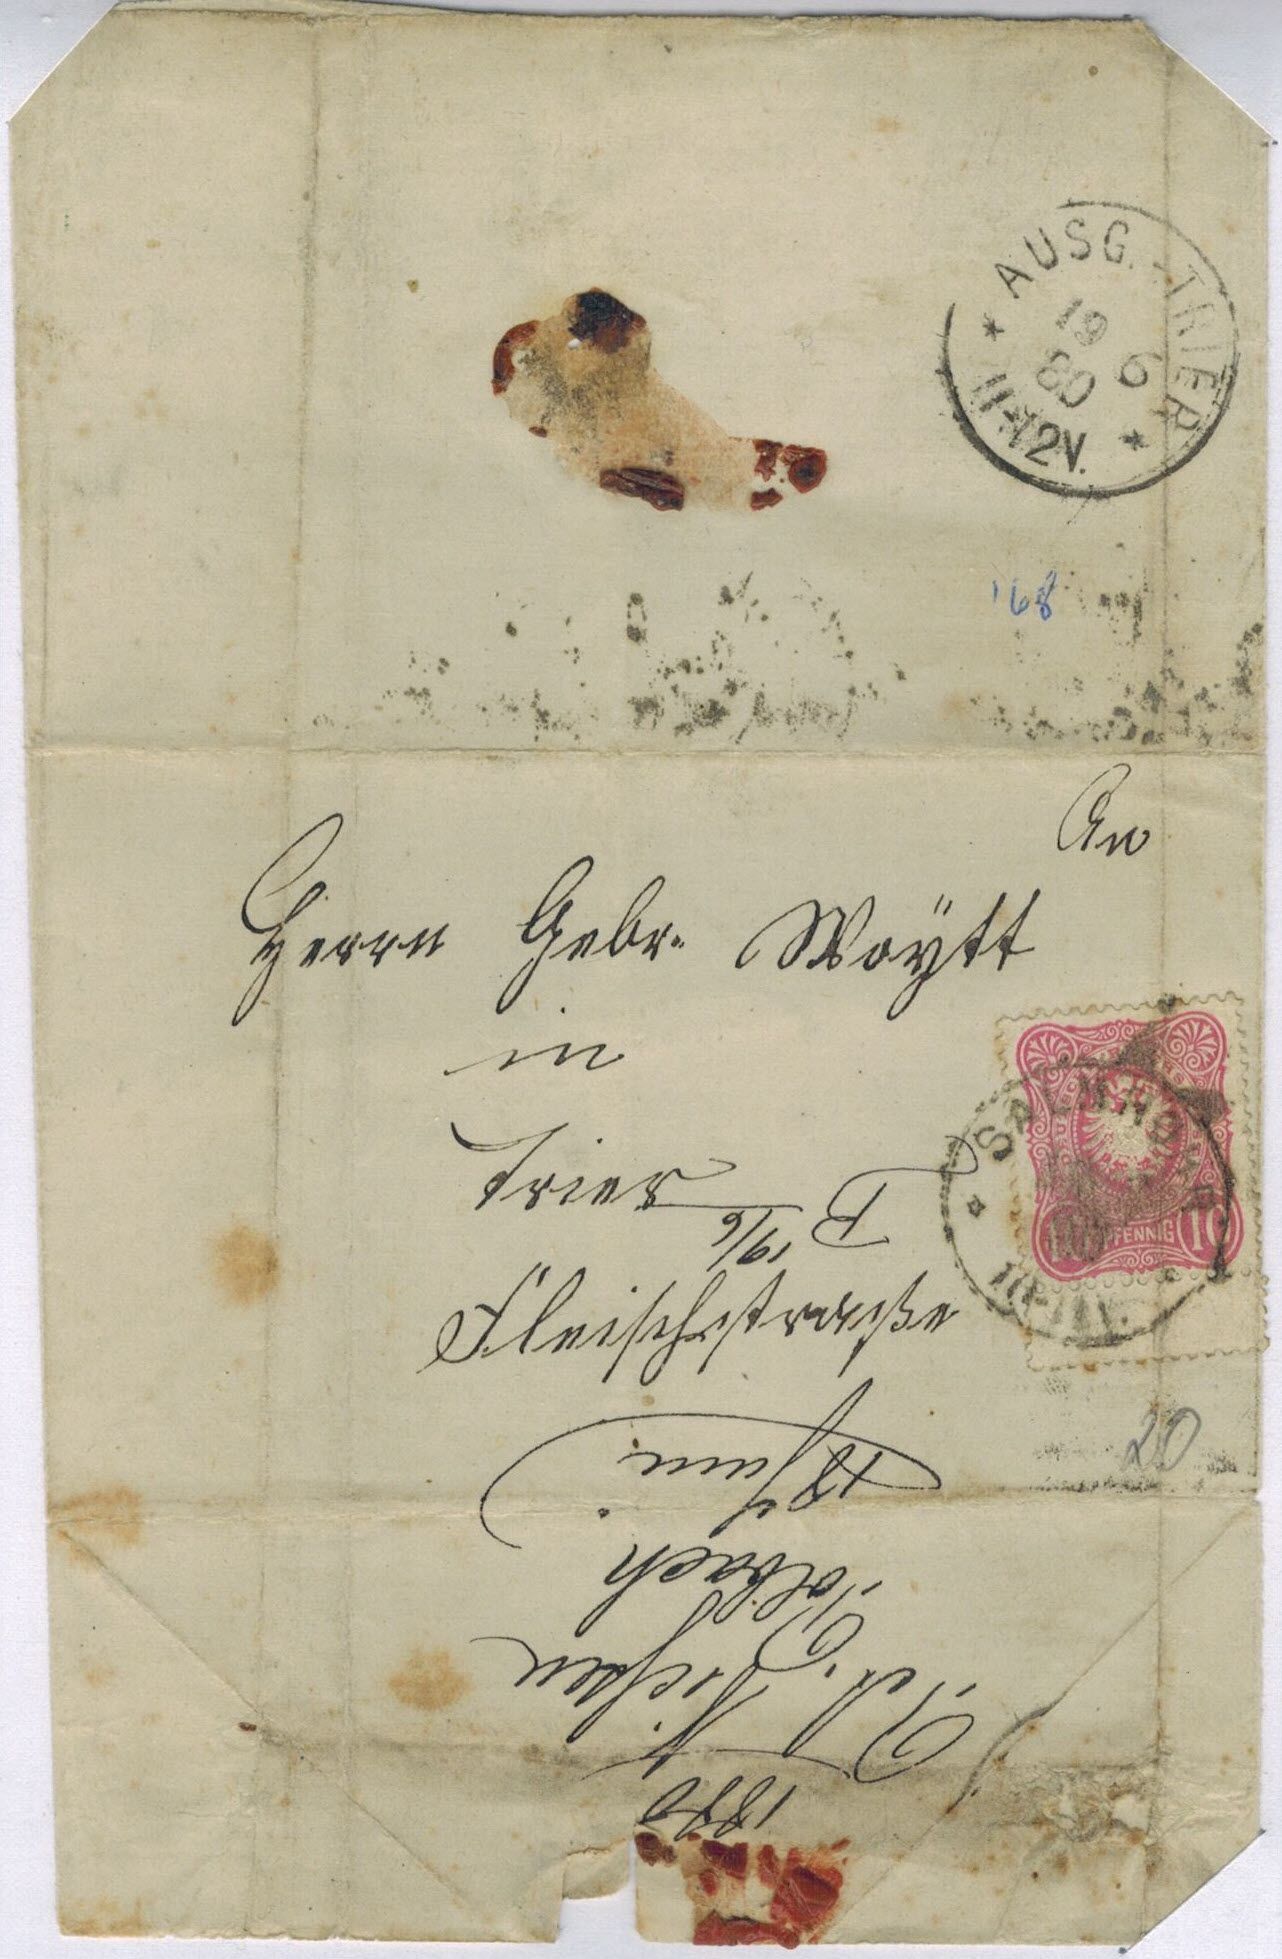 AUSG. TRIER
19 6
80
11-12V.
168
An
Herrn Gebr. Woÿtt
in
Trier
19/6
Fleischstraße
SALMROHR
10 PFENNIG 10
20
1880
Pet.
Salbach
18 Juni